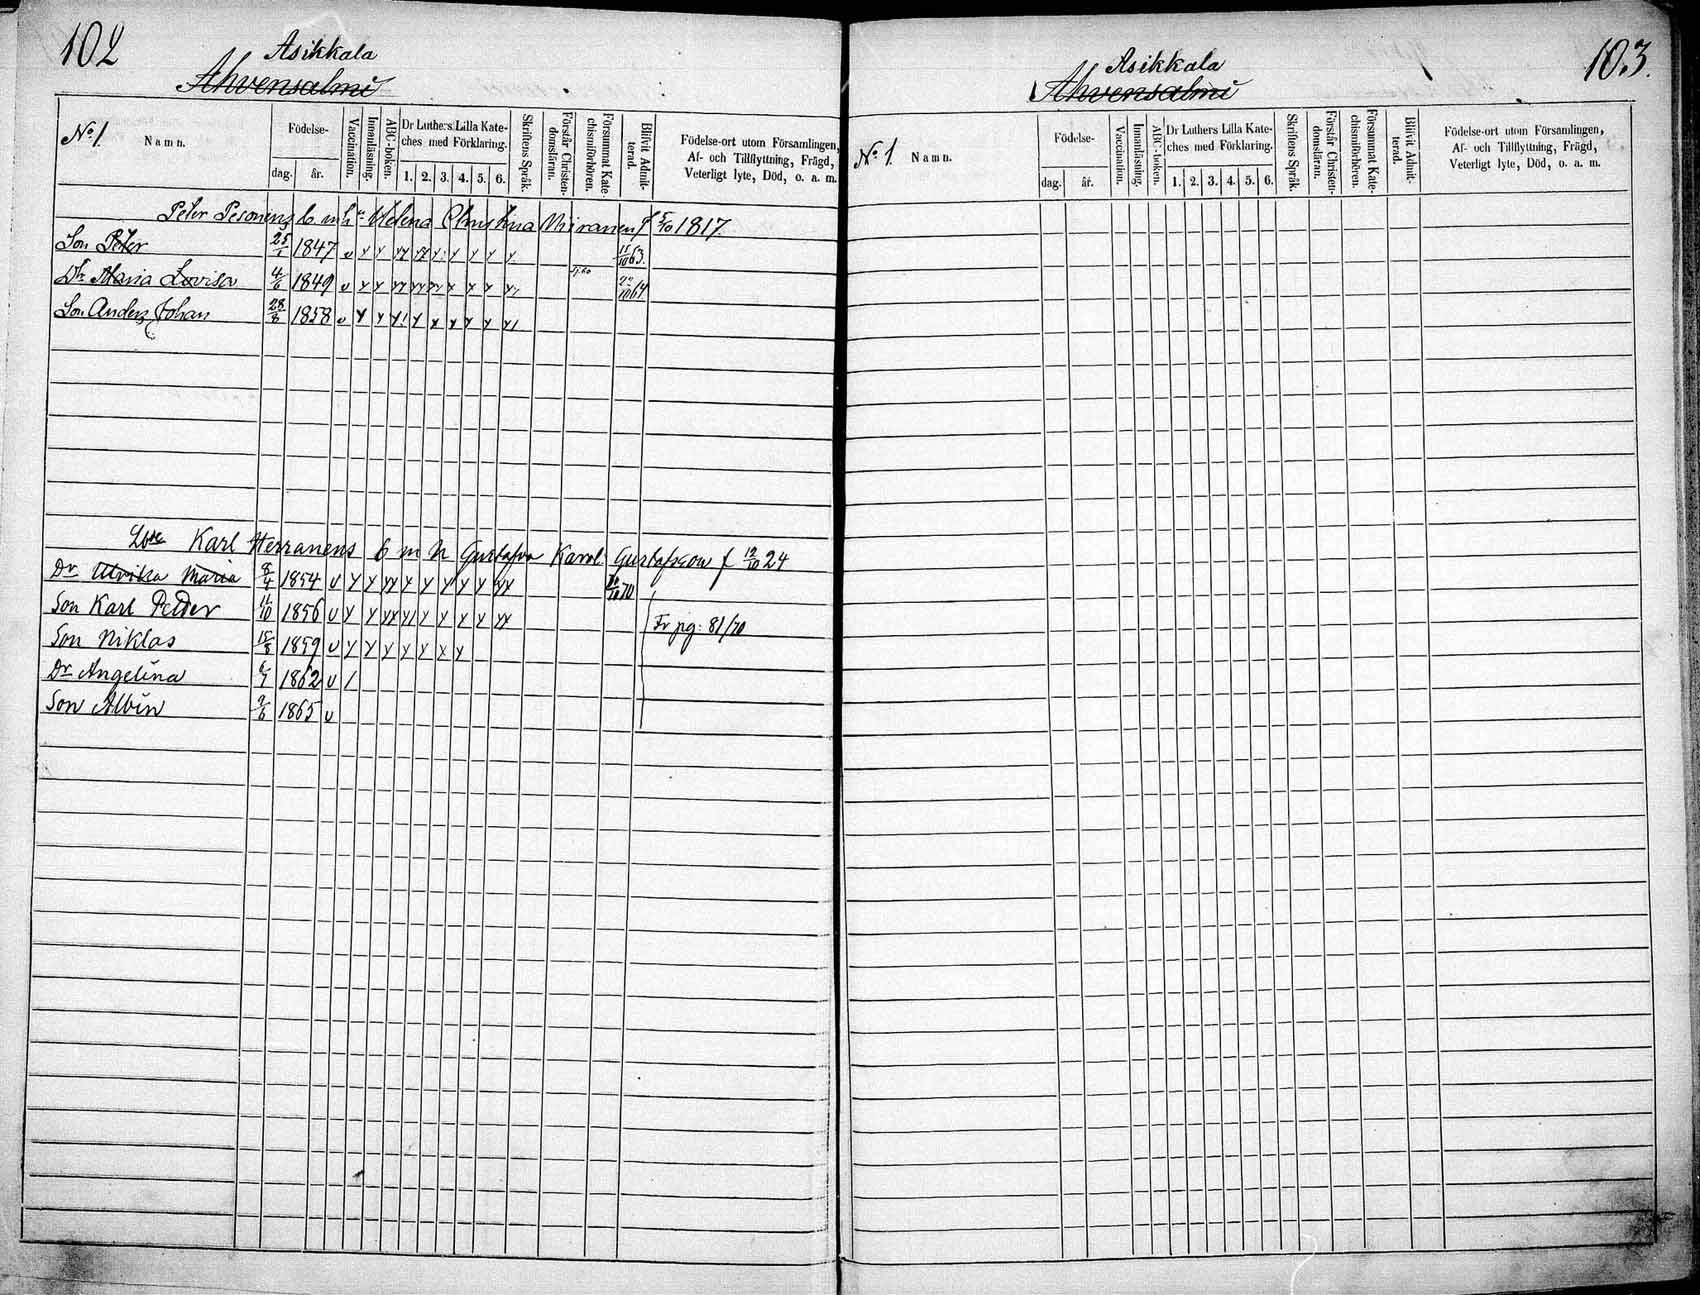 102
Asikkala
Ahvensalmi
No 1. Namn.
Födelse-
dag. år.
Vaccination.
Innanläsning.
ABC-boken.
Dr Luthers Lilla Kate-
ches med Förklaring.
1. 2. 3. 4. 5. 6.
Skriftens Språk.
Förstår Christen-
domsläran.
Försummat Kate-
chismiförhören.
Blifvit Admit-
terad.
Födelse-ort utom Församlingen,
Af- och Tillflyttning, Frägd,
Veterligt lyte, Död, o. a. m.
Peter Pesonens b m h Helena Christina Miiranen f 5/10 1817.
Son Peter 25/1 1847 v 11/10 63.
Dr Maria Lovisa 4/6 1849 v 10 64
Son Anders Johan 28/8 1858 v
Karl Herranens b m h Gustafva Karol. Gustafsson f 12/10 24
Dr Ulrika Maria 8/4 1854 v 10 70
Son Karl Petter 11/10 1856 v Fr pg: 81/70
Son Niklas 15/8 1859 v
Dr Angelina 6/7 1862 v
Son Albin 9/6 1865 v
103.
Asikkala
Ahvensalmi
No. 1. Namn.
Födelse-
dag. år.
Vaccination.
Innanläsning.
ABC-boken.
Dr Luthers Lilla Kate-
ches med Förklaring.
1. 2. 3. 4. 5. 6.
Skriftens Språk.
Förstår Christen-
domsläran.
Försummat Kate-
chismiförhören.
Blifvit Admit-
terad.
Födelse-ort utom Församlingen,
Af- och Tillflyttning, Frägd,
Veterligt lyte, Död, o. a. m.